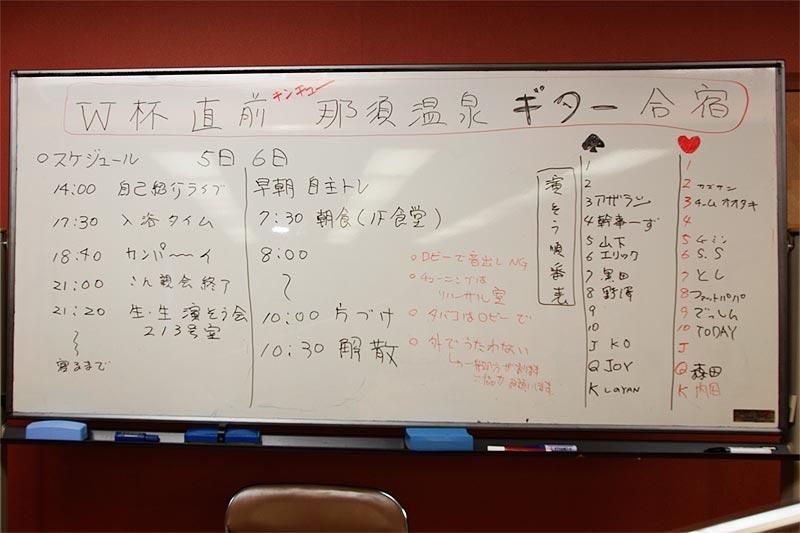 W杯直前 キンチョー 那須温泉 ギター合宿
○スケジュール 5日 6日
14:00 自己紹介ライブ
17:30 入浴タイム
18:40 カンパ〜〜イ
21:00 こん親会終了
21:20 生・生 演そう会
213号室
〜
寝るまで
早朝 自主トレ
7:30 朝食(1F食堂)
8:00
〜
10:00 片づけ
10:30 解散
○ロビーで音出しNG
○チューニングは
リハーサル室
○タバコはロビーで
○外でうたわない
ご協力お願いします
演そう順番表
♠
1
2
3 アザラシ
4 幹事ーず
5 山下
6 エリック
7 黒田
8 野澤
9
10
J KO
Q JOY
K LAYAN
♥
1
2 カズサン
3 チームオオタキ
4
5
6 S.S
7 とし
8 ファットパパ
9 でっしム
10 TODAY
J
Q 森田
K 内田